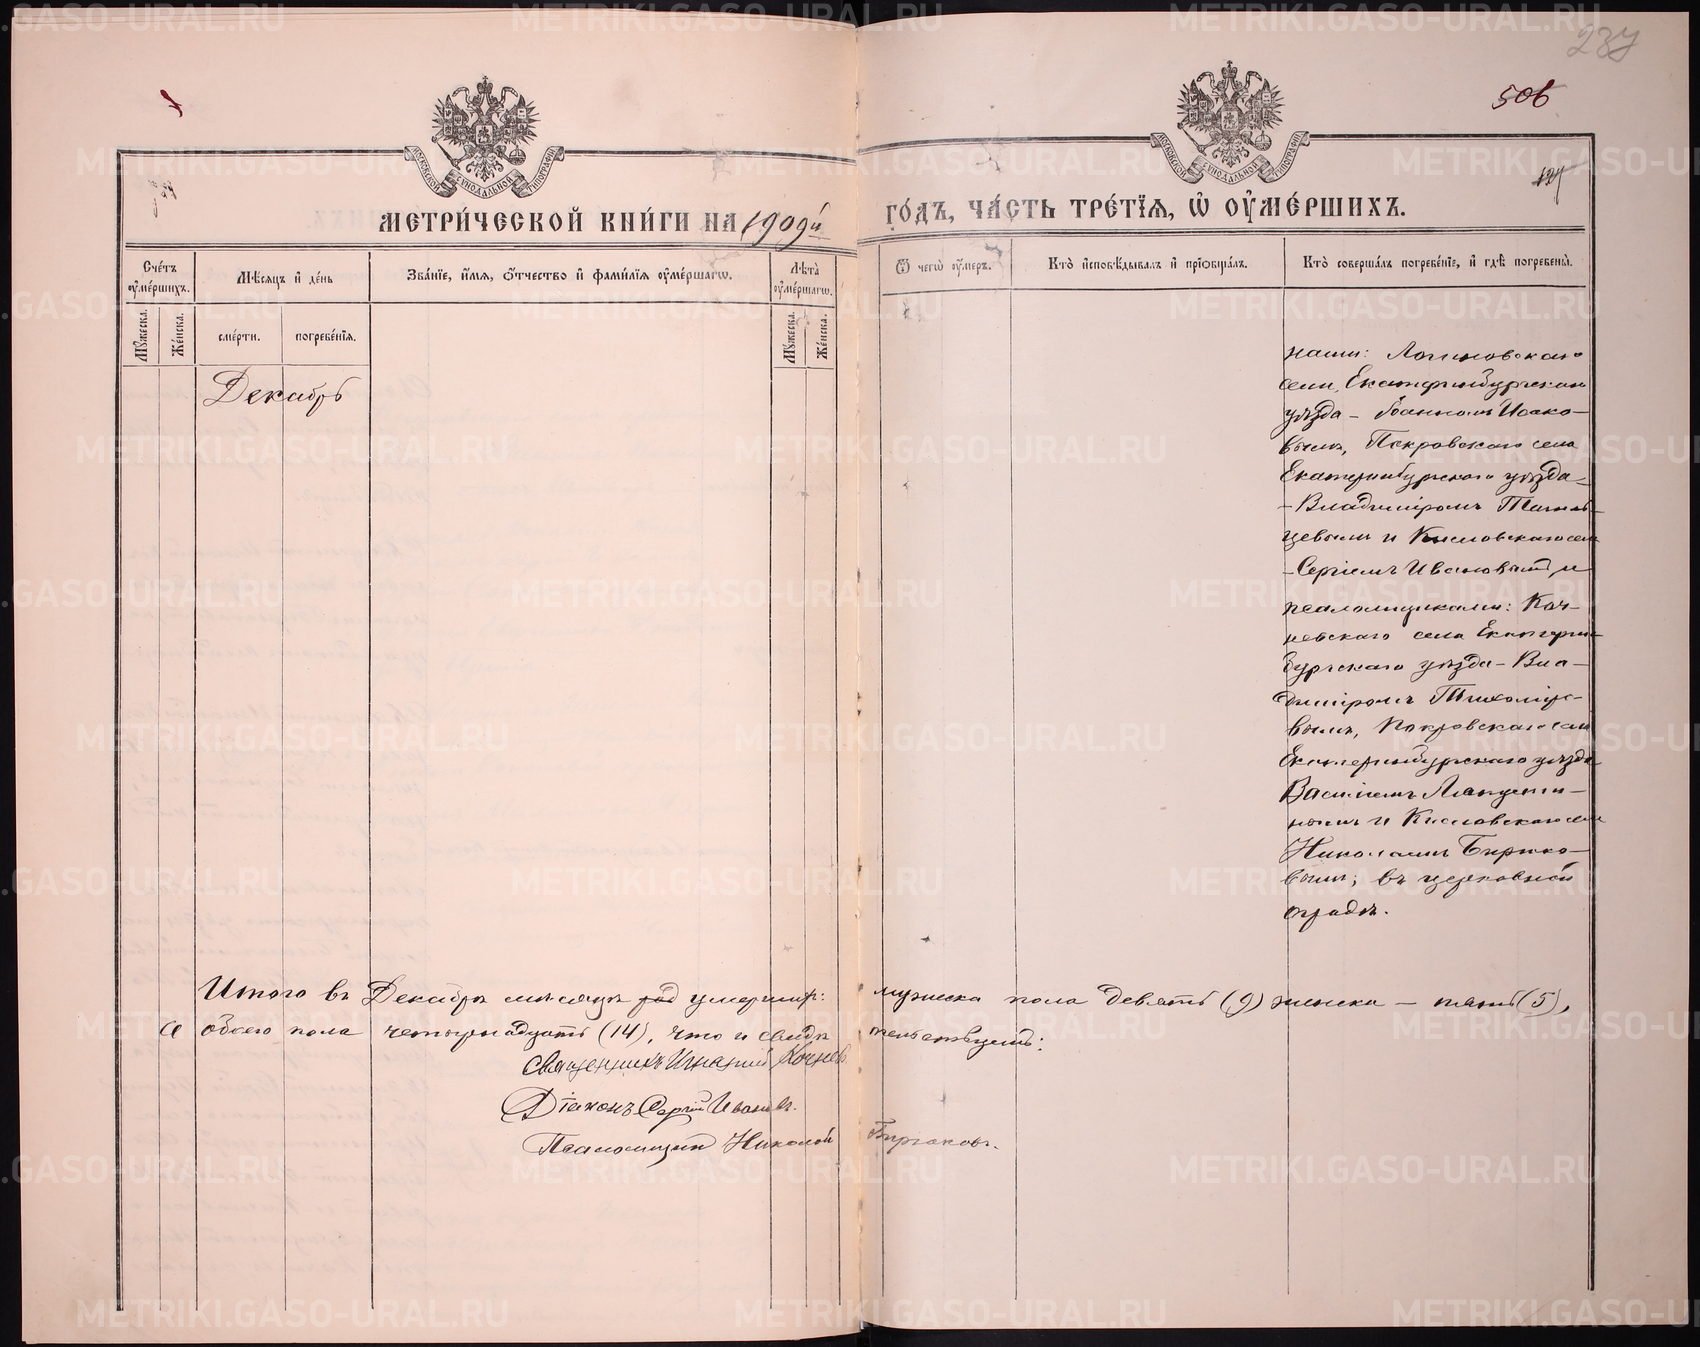 237
506
127
МЕТРИ́ЧЕСКОЙ КНИ́ГИ НА 1909й ГО́ДЪ, ЧА́СТЬ ТРЕ́ТЇЯ, Ѡ ОУ҆МЕ́РШИХЪ.
МОСКОВСКОЙ СѴНОДАЛЬНОЙ ТИПОГРАФІИ
МОСКОВСКОЙ СѴНОДАЛЬНОЙ ТИПОГРАФІИ
Сче́тъ оу҆ме́ршихъ.
Мѣ́сяцъ и҆ де́нь
Зва́нїе, и҆́мя, ѻ҆́тчество и҆ фами́лїя оу҆ме́ршагѡ.
Лѣта̀ оу҆ме́ршагѡ.
Ѿ чегѡ̀ оу҆́меръ.
Кто̀ и҆сповѣ́дывалъ и҆ прїѻбща́лъ.
Кто̀ соверша́лъ погребе́нїе, и҆ гдѣ̀ погребены̀.
Мꙋ́жеска.
Же́нска.
сме́рти.
погребе́нїя.
Мꙋ́жеска.
Же́нска.
Декабрь
нами: Логиновскаго
села, Екатеринбургскаго
уѣзда – Іоанномъ Исако-
вымъ, Покровскаго села
Екатеринбургскаго уѣзда –
– Владиміромъ
цевымъ и Кисловскаго села
– Сергіемъ Ивановымъ, и
псаломщиками: Коч-
невскаго села Екатерин-
бургскаго уѣзда – Вла-
диміромъ Тихомiро-
вымъ, Покровскаго села
Екатеринбургскаго уѣзда
Василіемъ
нымъ и Кисловскаго села
Николаемъ Бирюко-
вымъ; въ церковной
оградѣ.
Итого въ Декабрѣ мѣсяцѣ умерш: мужеска пола девять (9) женска – пять (5),
а обоего пола четырнадцать (14), что и свидѣтельствуемъ:
Священникъ Игнатій Кочневъ
Діаконъ Сергій Ивановъ.
Псаломщикъ Николай Бирюковъ.
METRIKI.GASO-URAL.RU